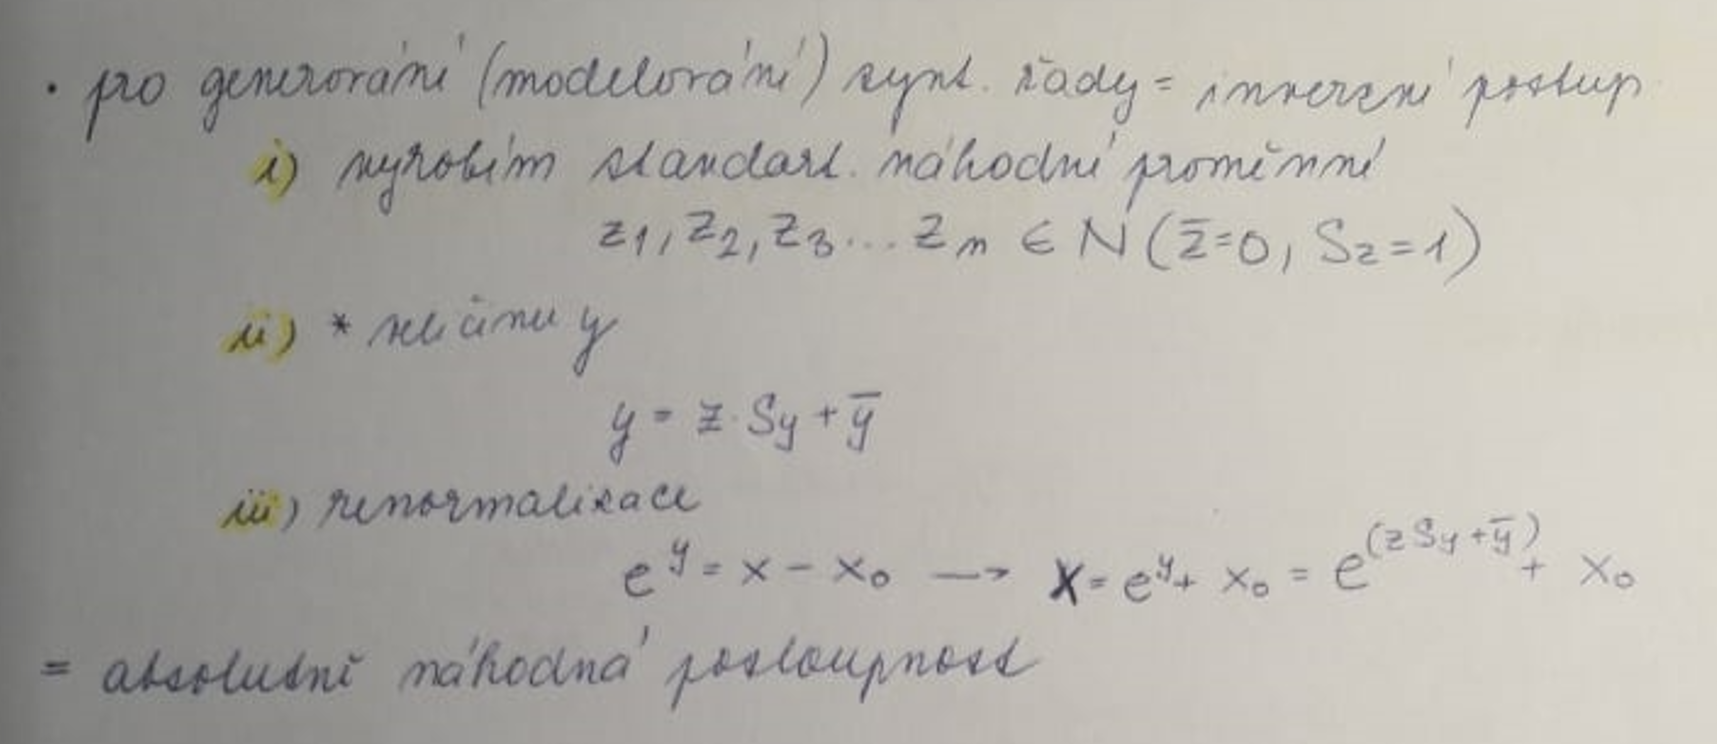 • pro generování (modelování) synt. řady = inverzní postup
i) vyrobím standart. náhodné proměnné
z1, z2, z3 ... zn ∈ N (z̄=0, Sz=1)
ii) * veličinu y
y = z · Sy + ȳ
iii) renormalizace
e^y = x − x₀ → x = e^y + x₀ = e^(z Sy + ȳ) + x₀
= absolutně náhodná posloupnost